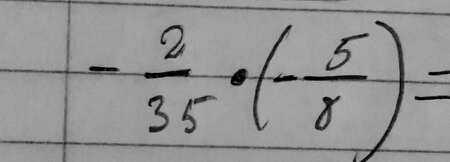 -2/35 • (-5/8) =